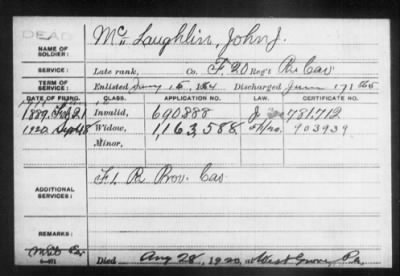 DEAD
NAME OF SOLDIER: Mc Laughlin, John J.
SERVICE: Late rank, Co. F. 20 Reg't Pa Cav
TERM OF SERVICE: Enlisted 15, 1864 Discharged June 17, 1865
DATE OF FILING. CLASS. APPLICATION NO. LAW. CERTIFICATE NO.
1889. 21 Invalid, 690888 781712
1920. Sept 18 Widow, 1,163,588 903939
Minor,
ADDITIONAL SERVICES: F. 1. Pa Prov. Cav
REMARKS:
Died Aug 28, 1920, at West Grove, Pa.